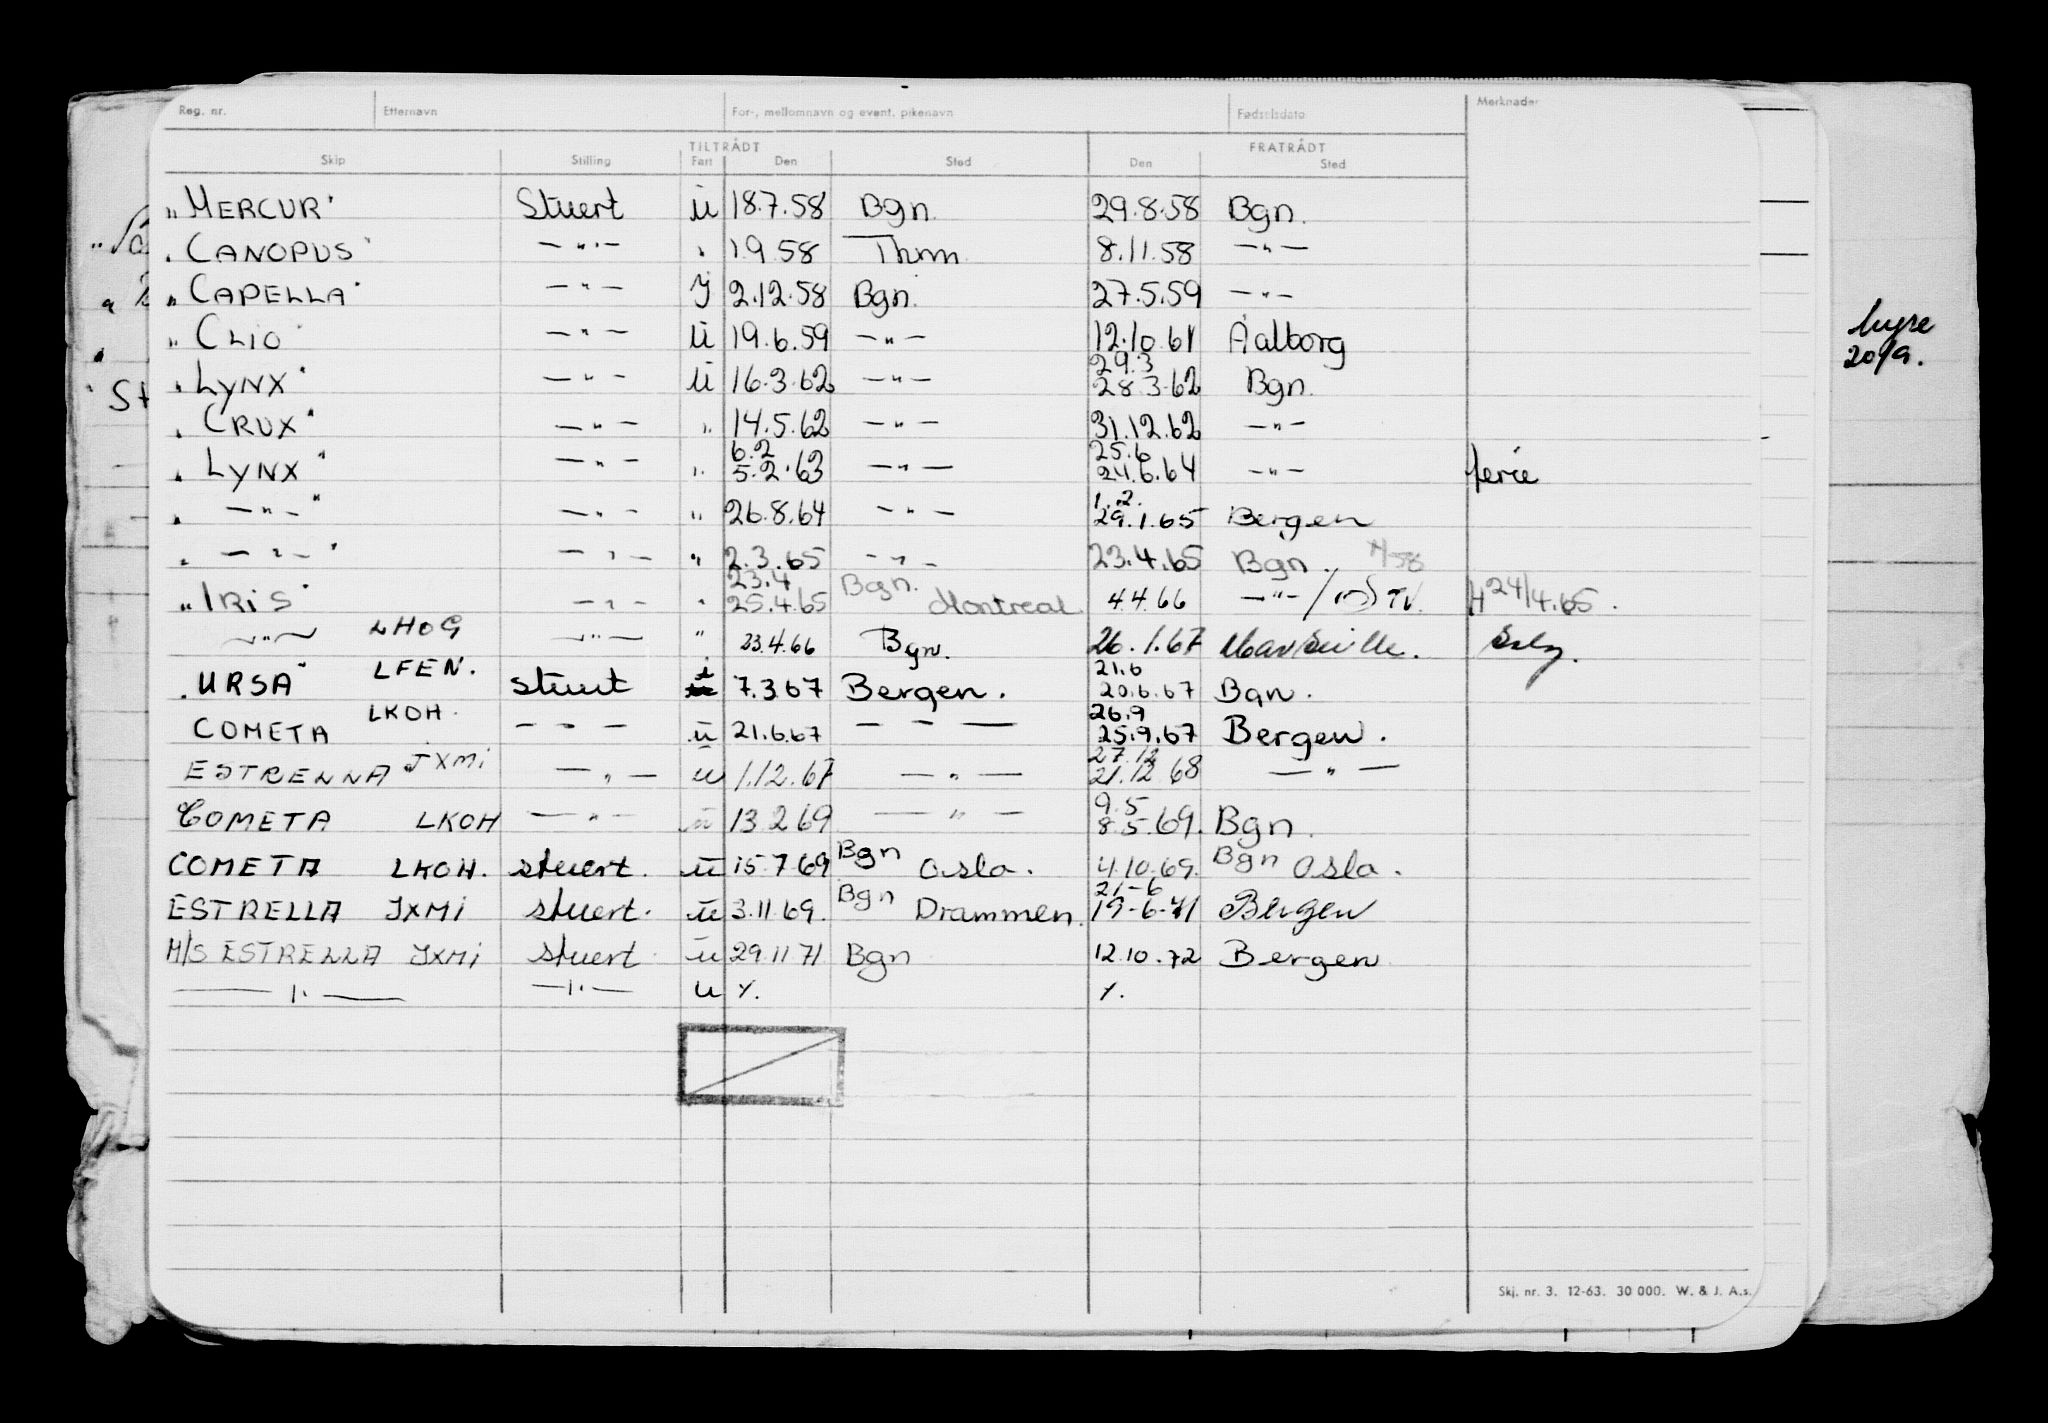 Reg. nr. Etternavn For-, mellomnavn og event. pikenavn Fødselsdato Merknader
TILTRÅDT FRATRÅDT
Skip Stilling Fart Den Sted Den Sted
„MERCUR" Stuert ü 18.7.58 Bgn. 29.8.58 Bgn.
„CANOPUS" —"— " 1.9.58 Thm 8.11.58 —"—
„CAPELLA" —"— J 2.12.58 Bgn. 27.5.59 —"—
„CLIO" —"— ü 19.6.59 —"— 12.10.61 Aalborg
29.3
„LYNX" —"— ü 16.3.62 —"— 28.3.62 Bgn.
„CRUX" —"— " 14.5.62 —"— 31.12.62 —"—
6.2 25.6
„LYNX" —"— " 5.2.63 —"— 24.6.64 —"— ferie
1.2.
„—"—" —"— " 26.8.64 —"— 29.1.65 Bergen
„—"—" —"— " 2.3.65 —"— 23.4.65 Bgn.
23.4 Bgn.
„IRIS" —"— " 25.4.65 Montreal 4.4.66 —"—/ TV. H 24/4.65.
—"— LHOG —"— " 23.4.66 Bgn. 26.1.67 Marseille.
21.6
„URSA" LFEN. stuert 7.3.67 Bergen. 20.6.67 Bgn.
26.9
COMETA LKOH. — " — ü 21.6.67 — " — 25.9.67 Bergen.
27.12
ESTRENNA JXMi —"— ü 1.12.67 —"— 21.12.68 —"—
9.5
COMETA LKOH —"— ü 13.2.69 —"— 8.5.69. Bgn.
COMETA LKOH. stuert. ü 15.7.69 Bgn Oslo. 4.10.69. Bgn Oslo.
21-6
ESTRELLA JXMi stuert. ü 3.11.69. Bgn Drammen. 19-6-71 Bergen
M/S ESTRELLA JXMi stuert ü 29.11.71 Bgn 12.10.72 Bergen
—"— —"— u
Skj. nr. 3. 12-63. 30 000. W. & J. A.s.
20/9.
St